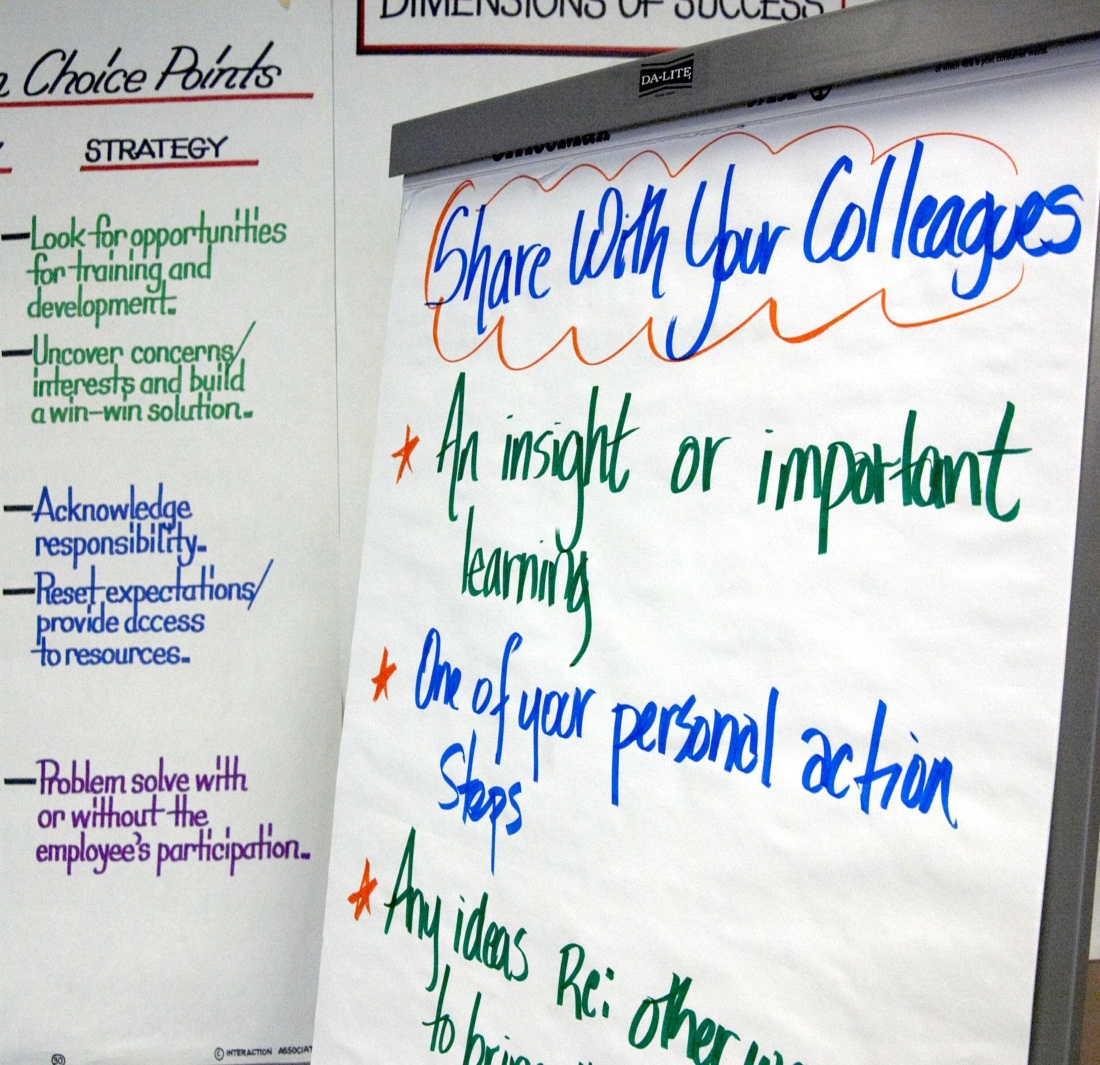 DIMENSIONS OF SUCCESS
Choice Points
STRATEGY
– Look for opportunities
for training and
development.
– Uncover concerns/
interests and build
a win-win solution.
– Acknowledge
responsibility.
– Reset expectations/
provide access
to resources.
– Problem solve with
or without the
employee's participation.
© INTERACTION ASSOCIAT
DA-LITE
Share With Your Colleagues
* An insight or important
learning
* One of your personal action
Steps
* Any ideas Re: other
to bring